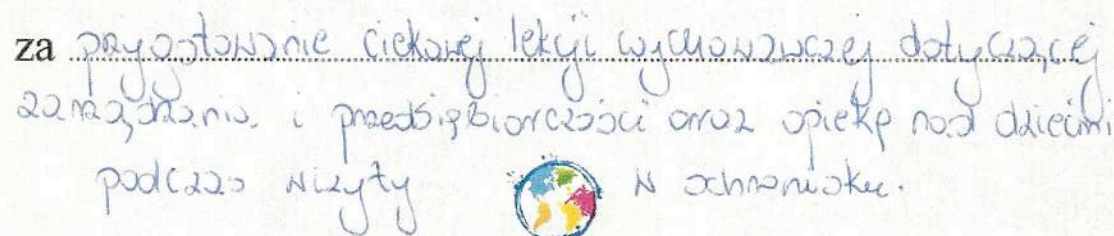 za przygotowanie ciekawej lekcji wychowawczej dotyczącej
zarządzania i przedsiębiorczości oraz opiekę nad dziećmi
podczas wizyty w schronisku.